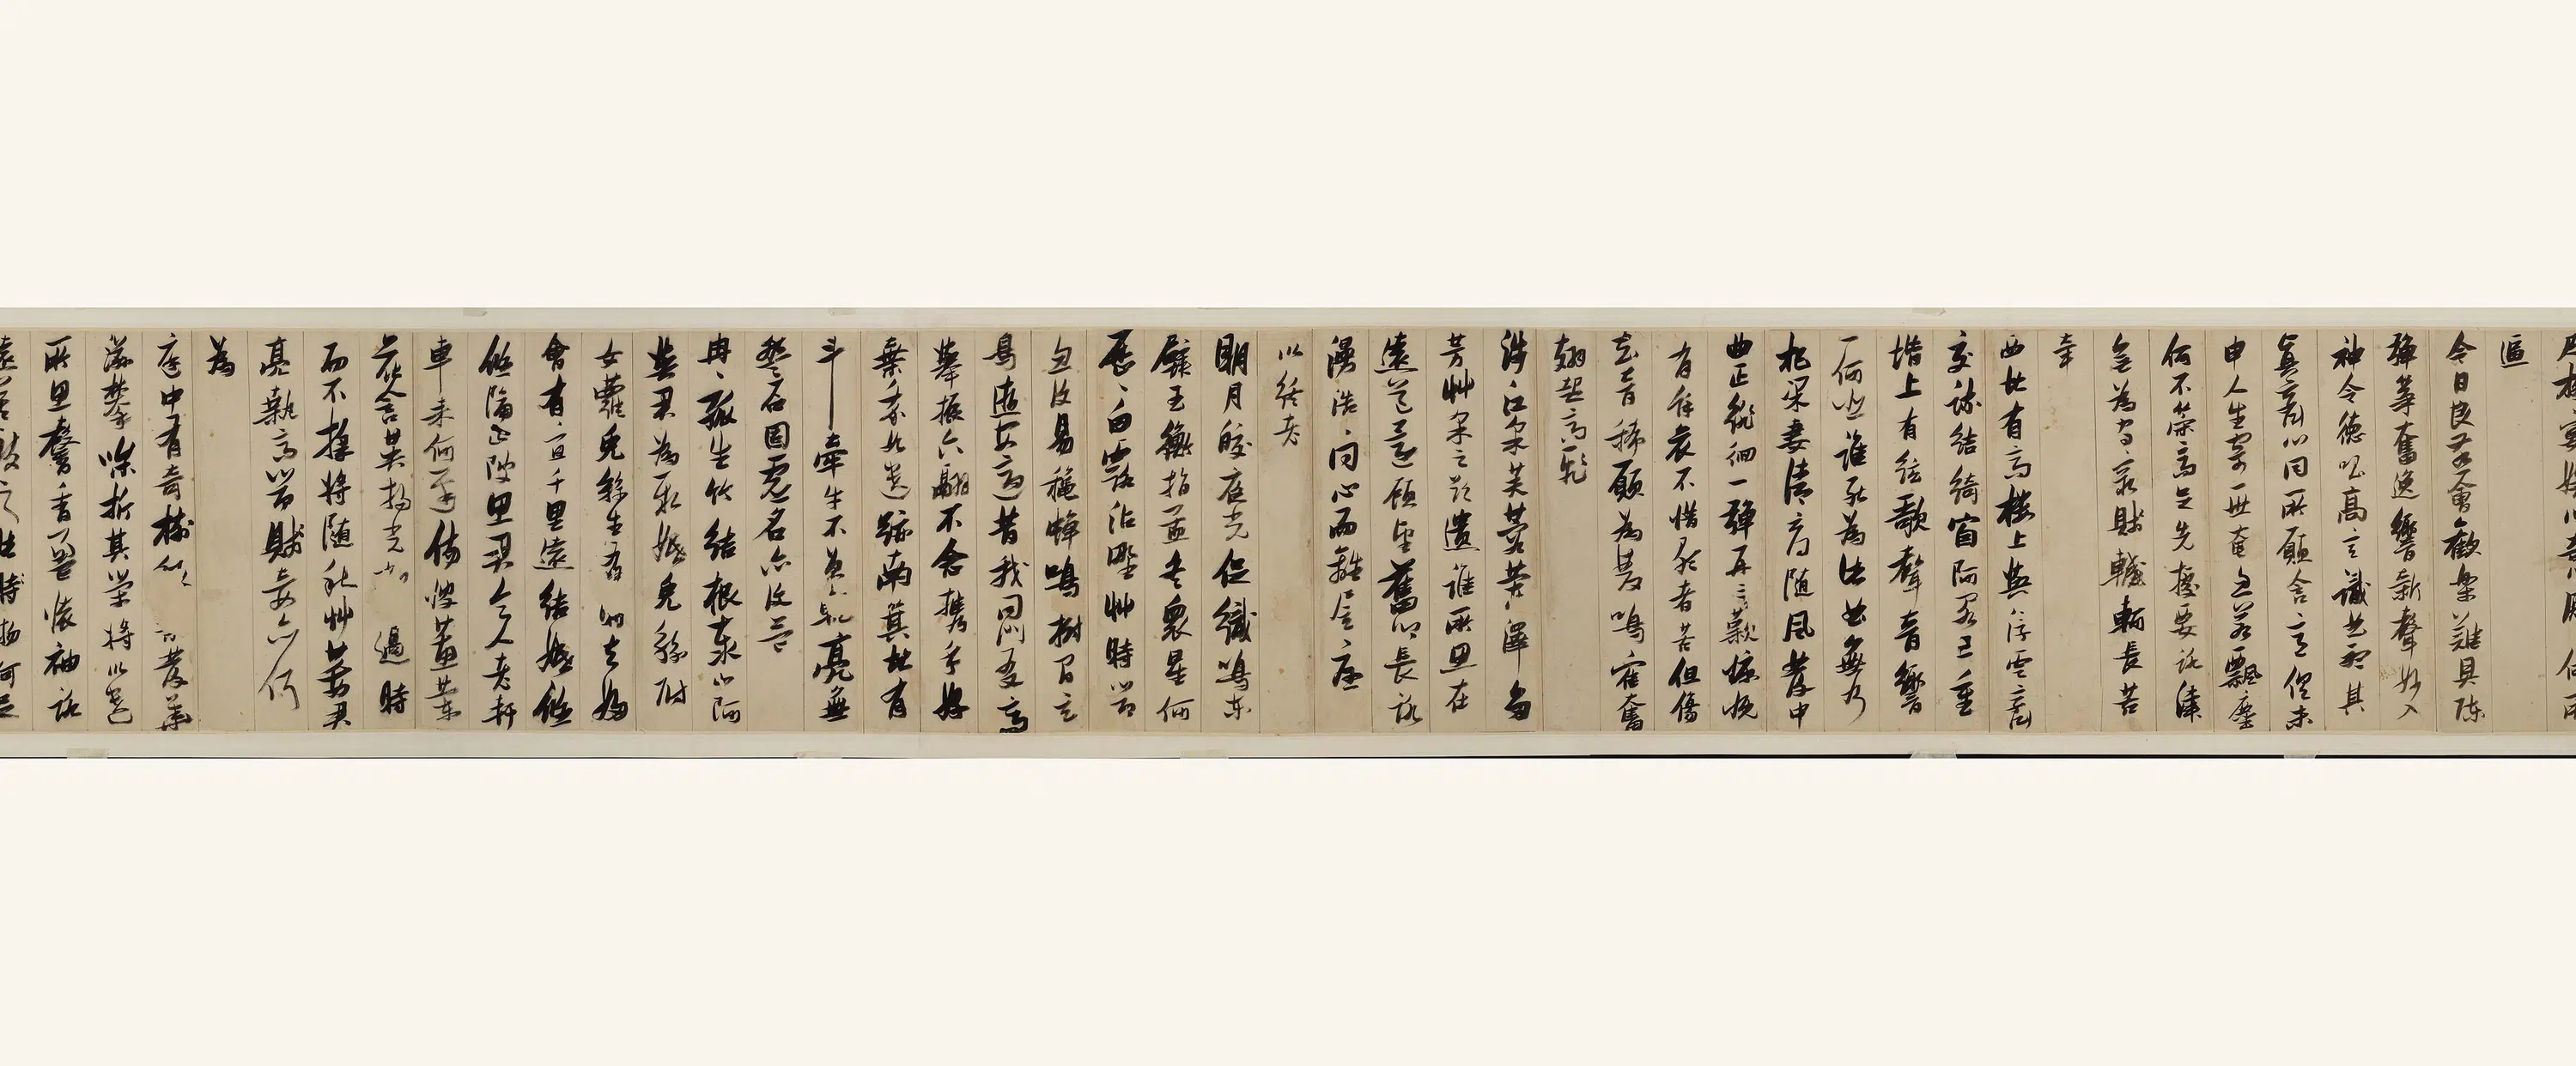 逼
今日良宴會歡樂難具陳
彈箏奮逸響新聲妙入
神令德唱高言識曲聽其
真齊心同所願含意俱未
申人生寄一世奄忽若飄塵
何不策高足先據要路津
無為守窮賤轗軻長苦
辛
西北有高樓上與浮雲齊
交疏結綺窗阿閣三重
階上有絃歌聲音響
一何悲誰能為此曲無乃
杞梁妻清商隨風發中
曲正徘徊一彈再三歎慷慨
有餘哀不惜歌者苦但傷
知音稀願為雙鳴鶴奮
翅起高飛
涉江采芙蓉蘭澤多
芳艸采之欲遺誰所思在
遠道還顧望舊鄉長路
漫浩浩同心而離居憂
以終老
明月皎夜光促織鳴東
壁玉衡指孟冬眾星何
歷歷白露沾野艸時節
忽復易秋蟬鳴樹間玄
鳥逝安適昔我同門友高
舉振六翮不念攜手好
棄我如遺跡南箕北有
斗牽牛不負軛亮無
盤石固虛名亦復益
冉冉孤生竹結根泰山阿
與君為新婚兔絲附
女蘿兔絲生有時夫婦
會有宜千里遠結婚悠
悠隔山陂思君令人老軒
車來何遲傷彼蕙蘭
花含英揚光輝過時
而不採將隨秋艸萎君
亮執高節賤妾亦何
為
庭中有奇樹綠葉發華
滋攀條折其榮將以遺
所思馨香盈懷袖路
遠莫致之此物何足